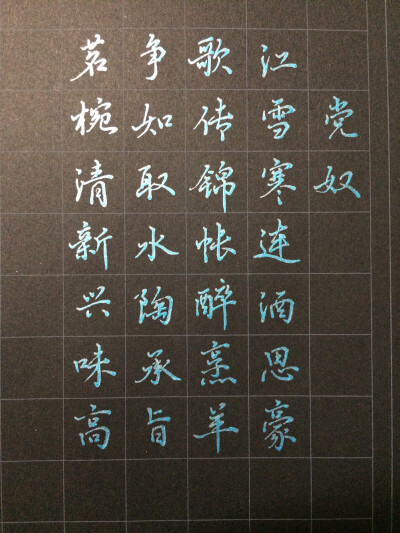 党奴
江雪寒连酒思豪
歌传锦帐醉烹羊
争如取水陶承旨
茗椀清新兴味高